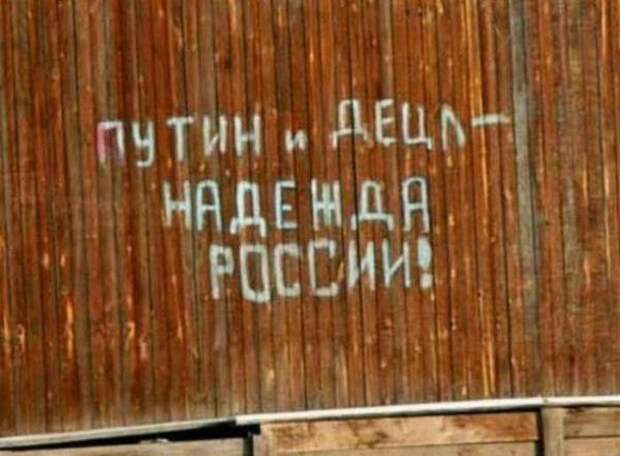 ПУТИН и ДЕЦЛ-
НАДЕЖДА
РОССИИ!